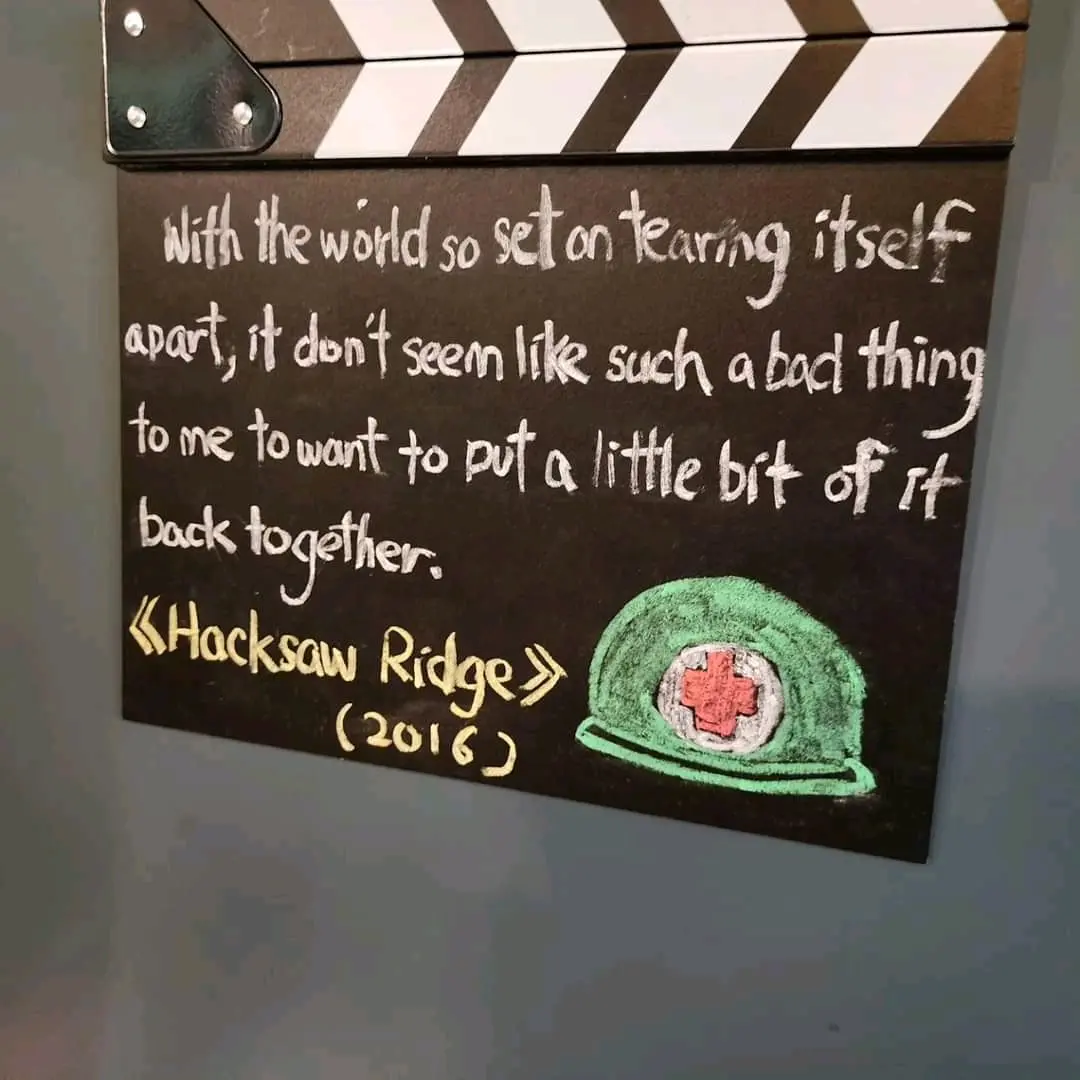 With the world so set on tearing itself
apart, it don't seem like such a bad thing
to me to want to put a little bit of it
back together.
《Hacksaw Ridge》
(2016)